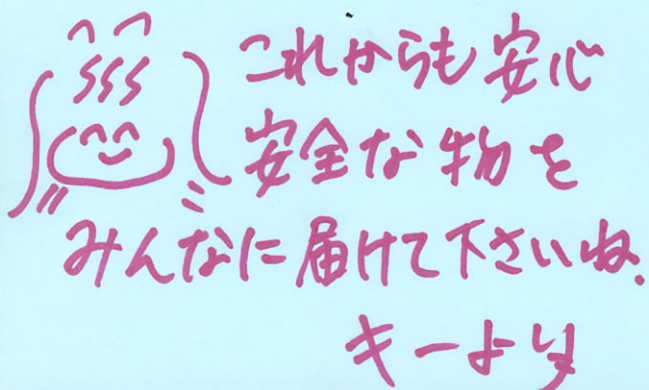 これからも安心
安全な物を
みんなに届けて下さいね.
キーより